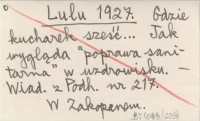 Lulu 1927. Gdzie
kucharek sześć... Jak
wygląda "poprawa sani-
tarna" w uzdrowisku. —
Wiad. z Podh. nr 217.
W Zakopanem.